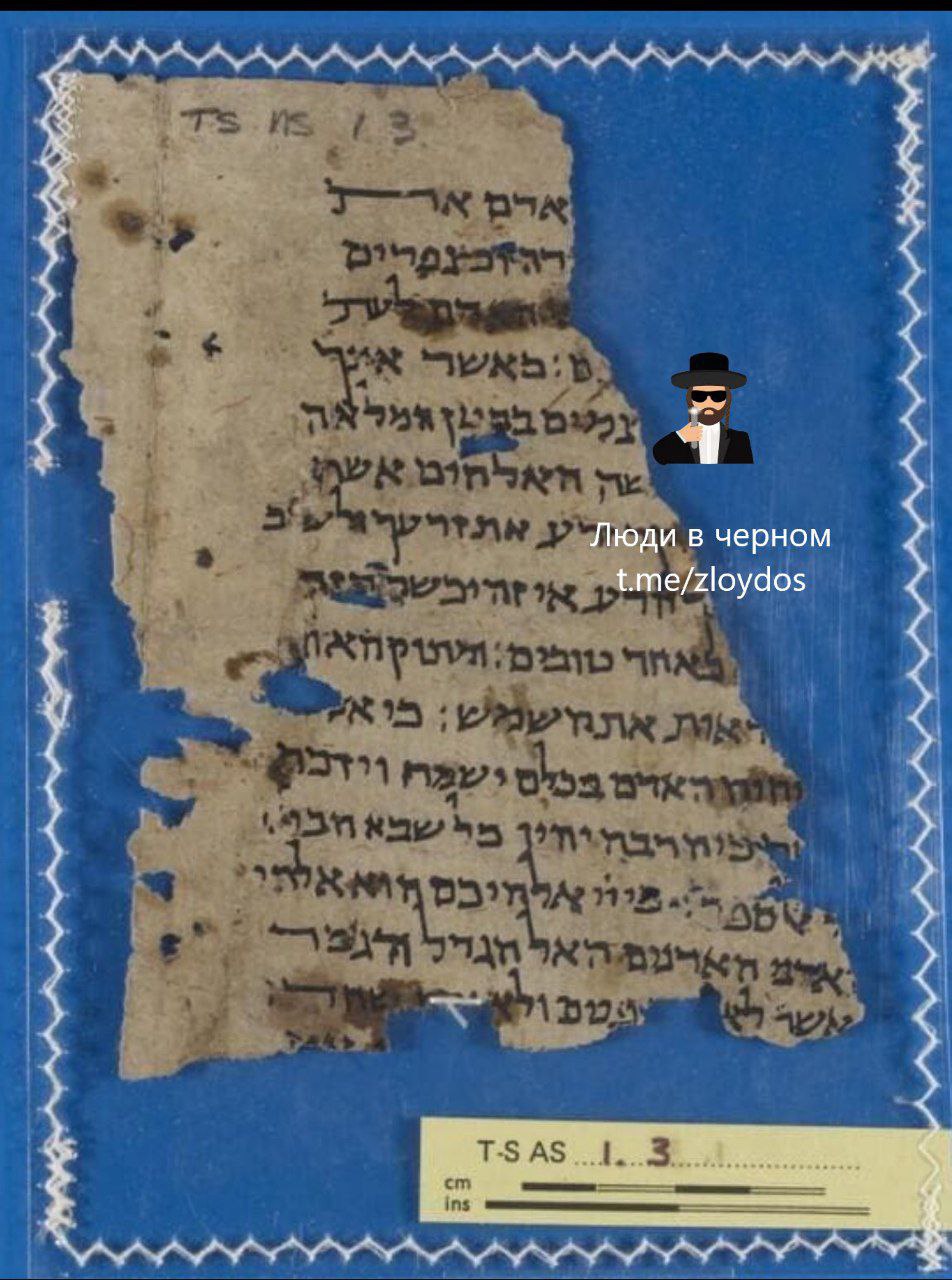 TS NS 1 3
אדם את
וכצפרים
האדם לעת
ם : כאשר אינך
צמים בבטן המלאה
שה האלהים אשר
את זרעך
ידע אי זה יכשר הזה
כאחד טובים : ומתוק האו
ראות את השמש : כי א
יחיה האדם בכלם ישמח ויזכר
כי הרבה יהיו כל שבא הבל
כי ייי אלהיכם הוא אלהי
אדני האדנים האל הגדל הגבר
אשר לא פנים ולא שחד
Люди в черном
t.me/zloydos
T-S AS 1. 3
cm
ins